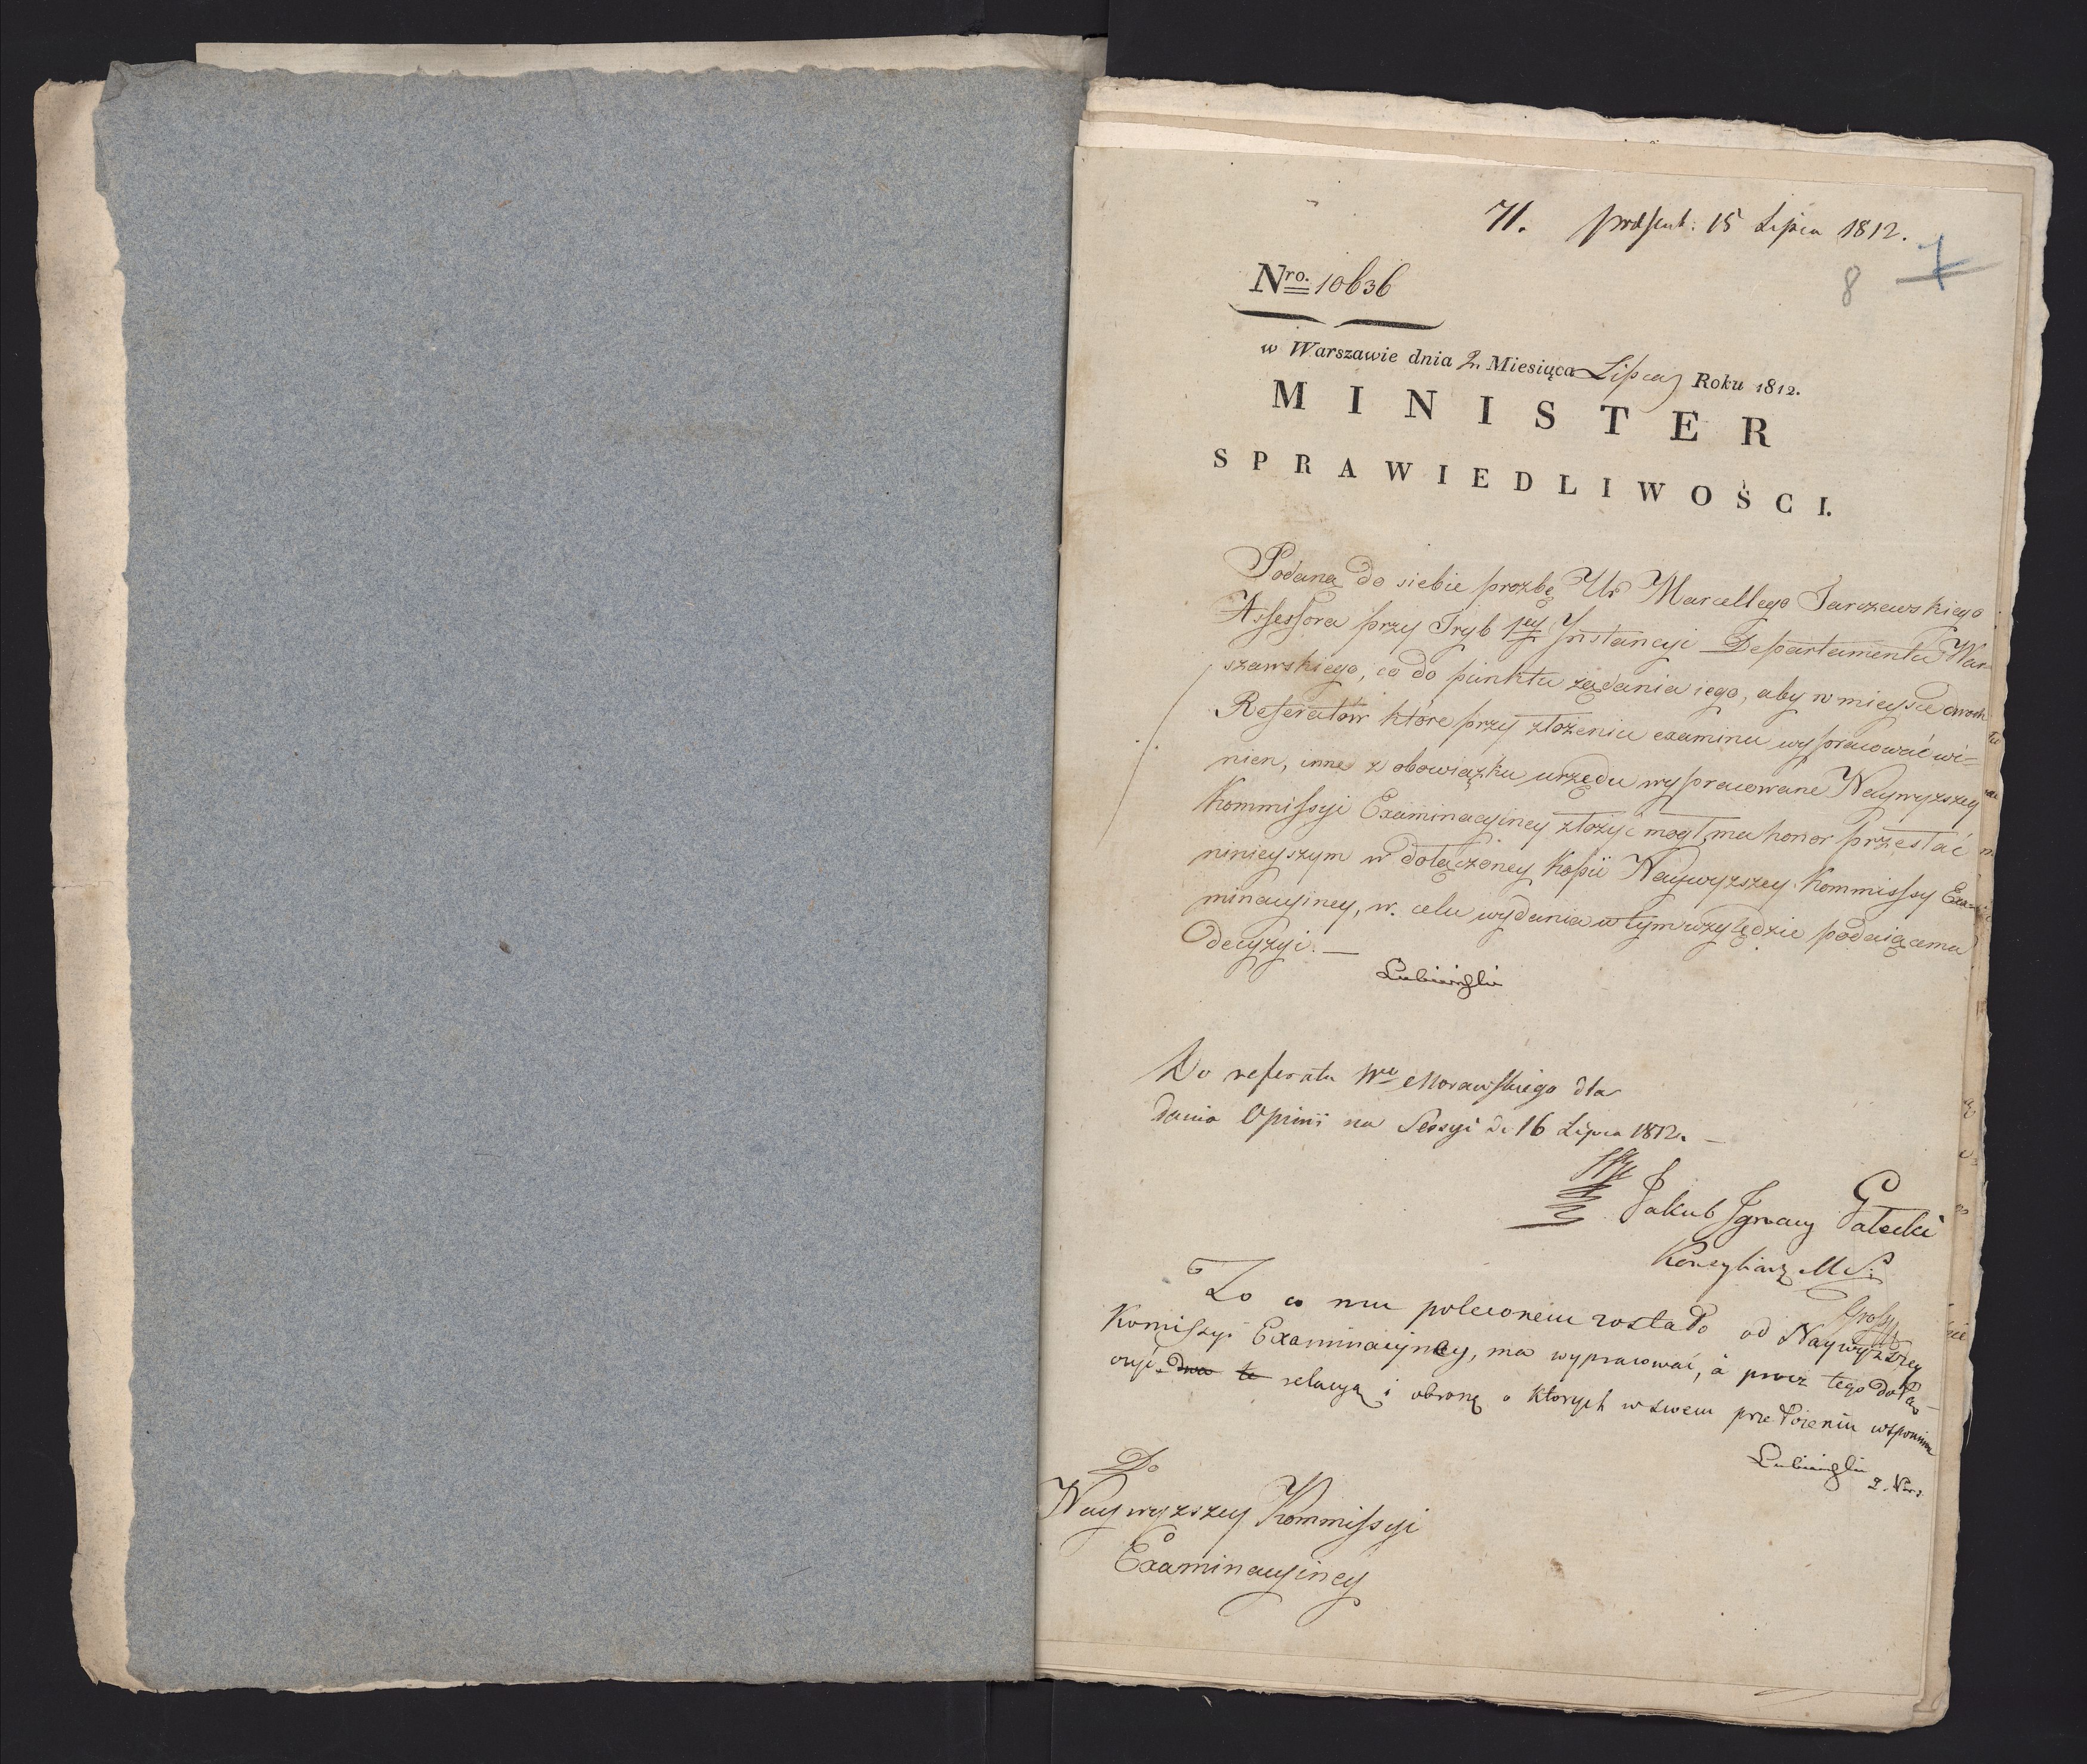 71. praesent: 15 Lipca 1812.
7
8
Nro. 10636
w Warszawie dnia 2. Miesiąca Lipca Roku 1812.
MINISTER
SPRAWIEDLIWOŚCI.
Podaną do siebie prozbę Ur Marcellego Jarczewskiego
Assessora przy Tryb 1ey Instancyi Departamentu War-
szawskiego, co do punktu żądania iego, aby w mieysce dwoch
Referatów które przy złożeniu examinu wypracować wi=
nien, inne z obowiązku urzędu wypracowane Naywyzszey
Kommissyi Examinacyiney złożyć mogł, ma honor przesłać
ninieyszym w dołączoney kopii Naywyzszey Kommissyi Exa-
minacyiney, w celu wydania w tym względzie podaiącemu
decyzyi. —
Lubieński
Do referatu We Morawskiego dla
dania Opinii na Sessyi d. 16 Lipca 1812. —
Jakub Ignacy Gałecki
Konsyliarz M S:
To co mu poleconem zostało od Naywyższey
Komissyi Examinacyney, ma wypracować, á procz tego dołą-
czyć dwa te relacyą i obronę o ktorych w swem przełożeniu wspomina
Lubieński
Do
Naywyzszey Kommissyi
Examinacyiney